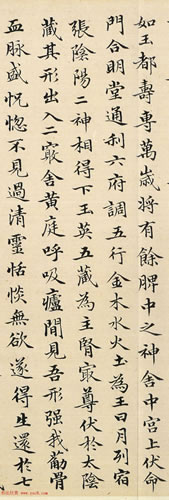 如玉都壽專萬歲將有餘脾中之神舍中宮上伏命
門合明堂通利六府調五行金木水火土為王日月列宿
張陰陽二神相得下玉英五藏為主腎寂尊伏於太陰
藏其形出入二竅舍黃庭呼吸爐間見吾形强我筋骨
血脉盛怳惚不見過清靈恬惔無欲遂得生還於七